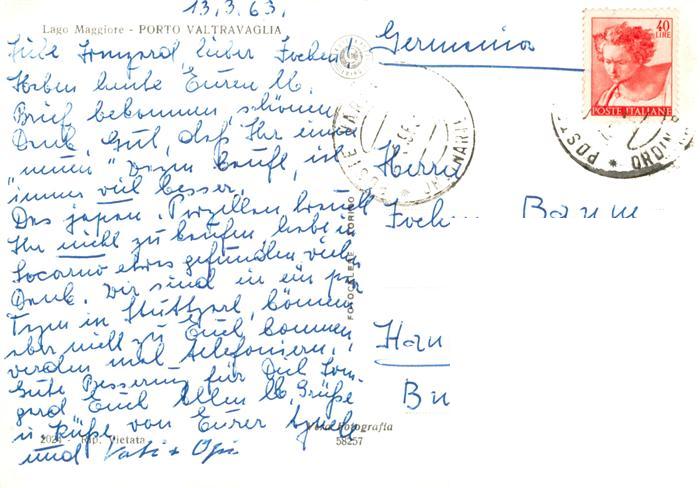 13.3.63.
Lago Maggiore - PORTO VALTRAVAGLIA
Liebe Irmgard, lieber Jochen!
Haben heute Euren lb.
Brief bekommen, schönen
Dank. Gut, daß Ihr einen
"neuen" Wagen kauft, ist
immer viel besser.
Das japan. Porzellan braucht
Ihr nicht zu kaufen, habe in
Locarno etwas gefunden, vielen
Dank. Wir sind in ein paar
Tagen in Stuttgart, können
aber nicht zu Euch kommen
werden mal telefonieren.
Gute Besserung für Dich Irm-
gard Euch Allen lb. Grüße
u. Küße von Eurer
und Vati + Opi
2024 - Rip. Vietata
Vera Fotografia
58257
FOTOCELERE TORINO
Germania
40
LIRE
POSTE ITALIANE
POSTE
ORDIN
Herrn
Joch
Baum
Han
Bu